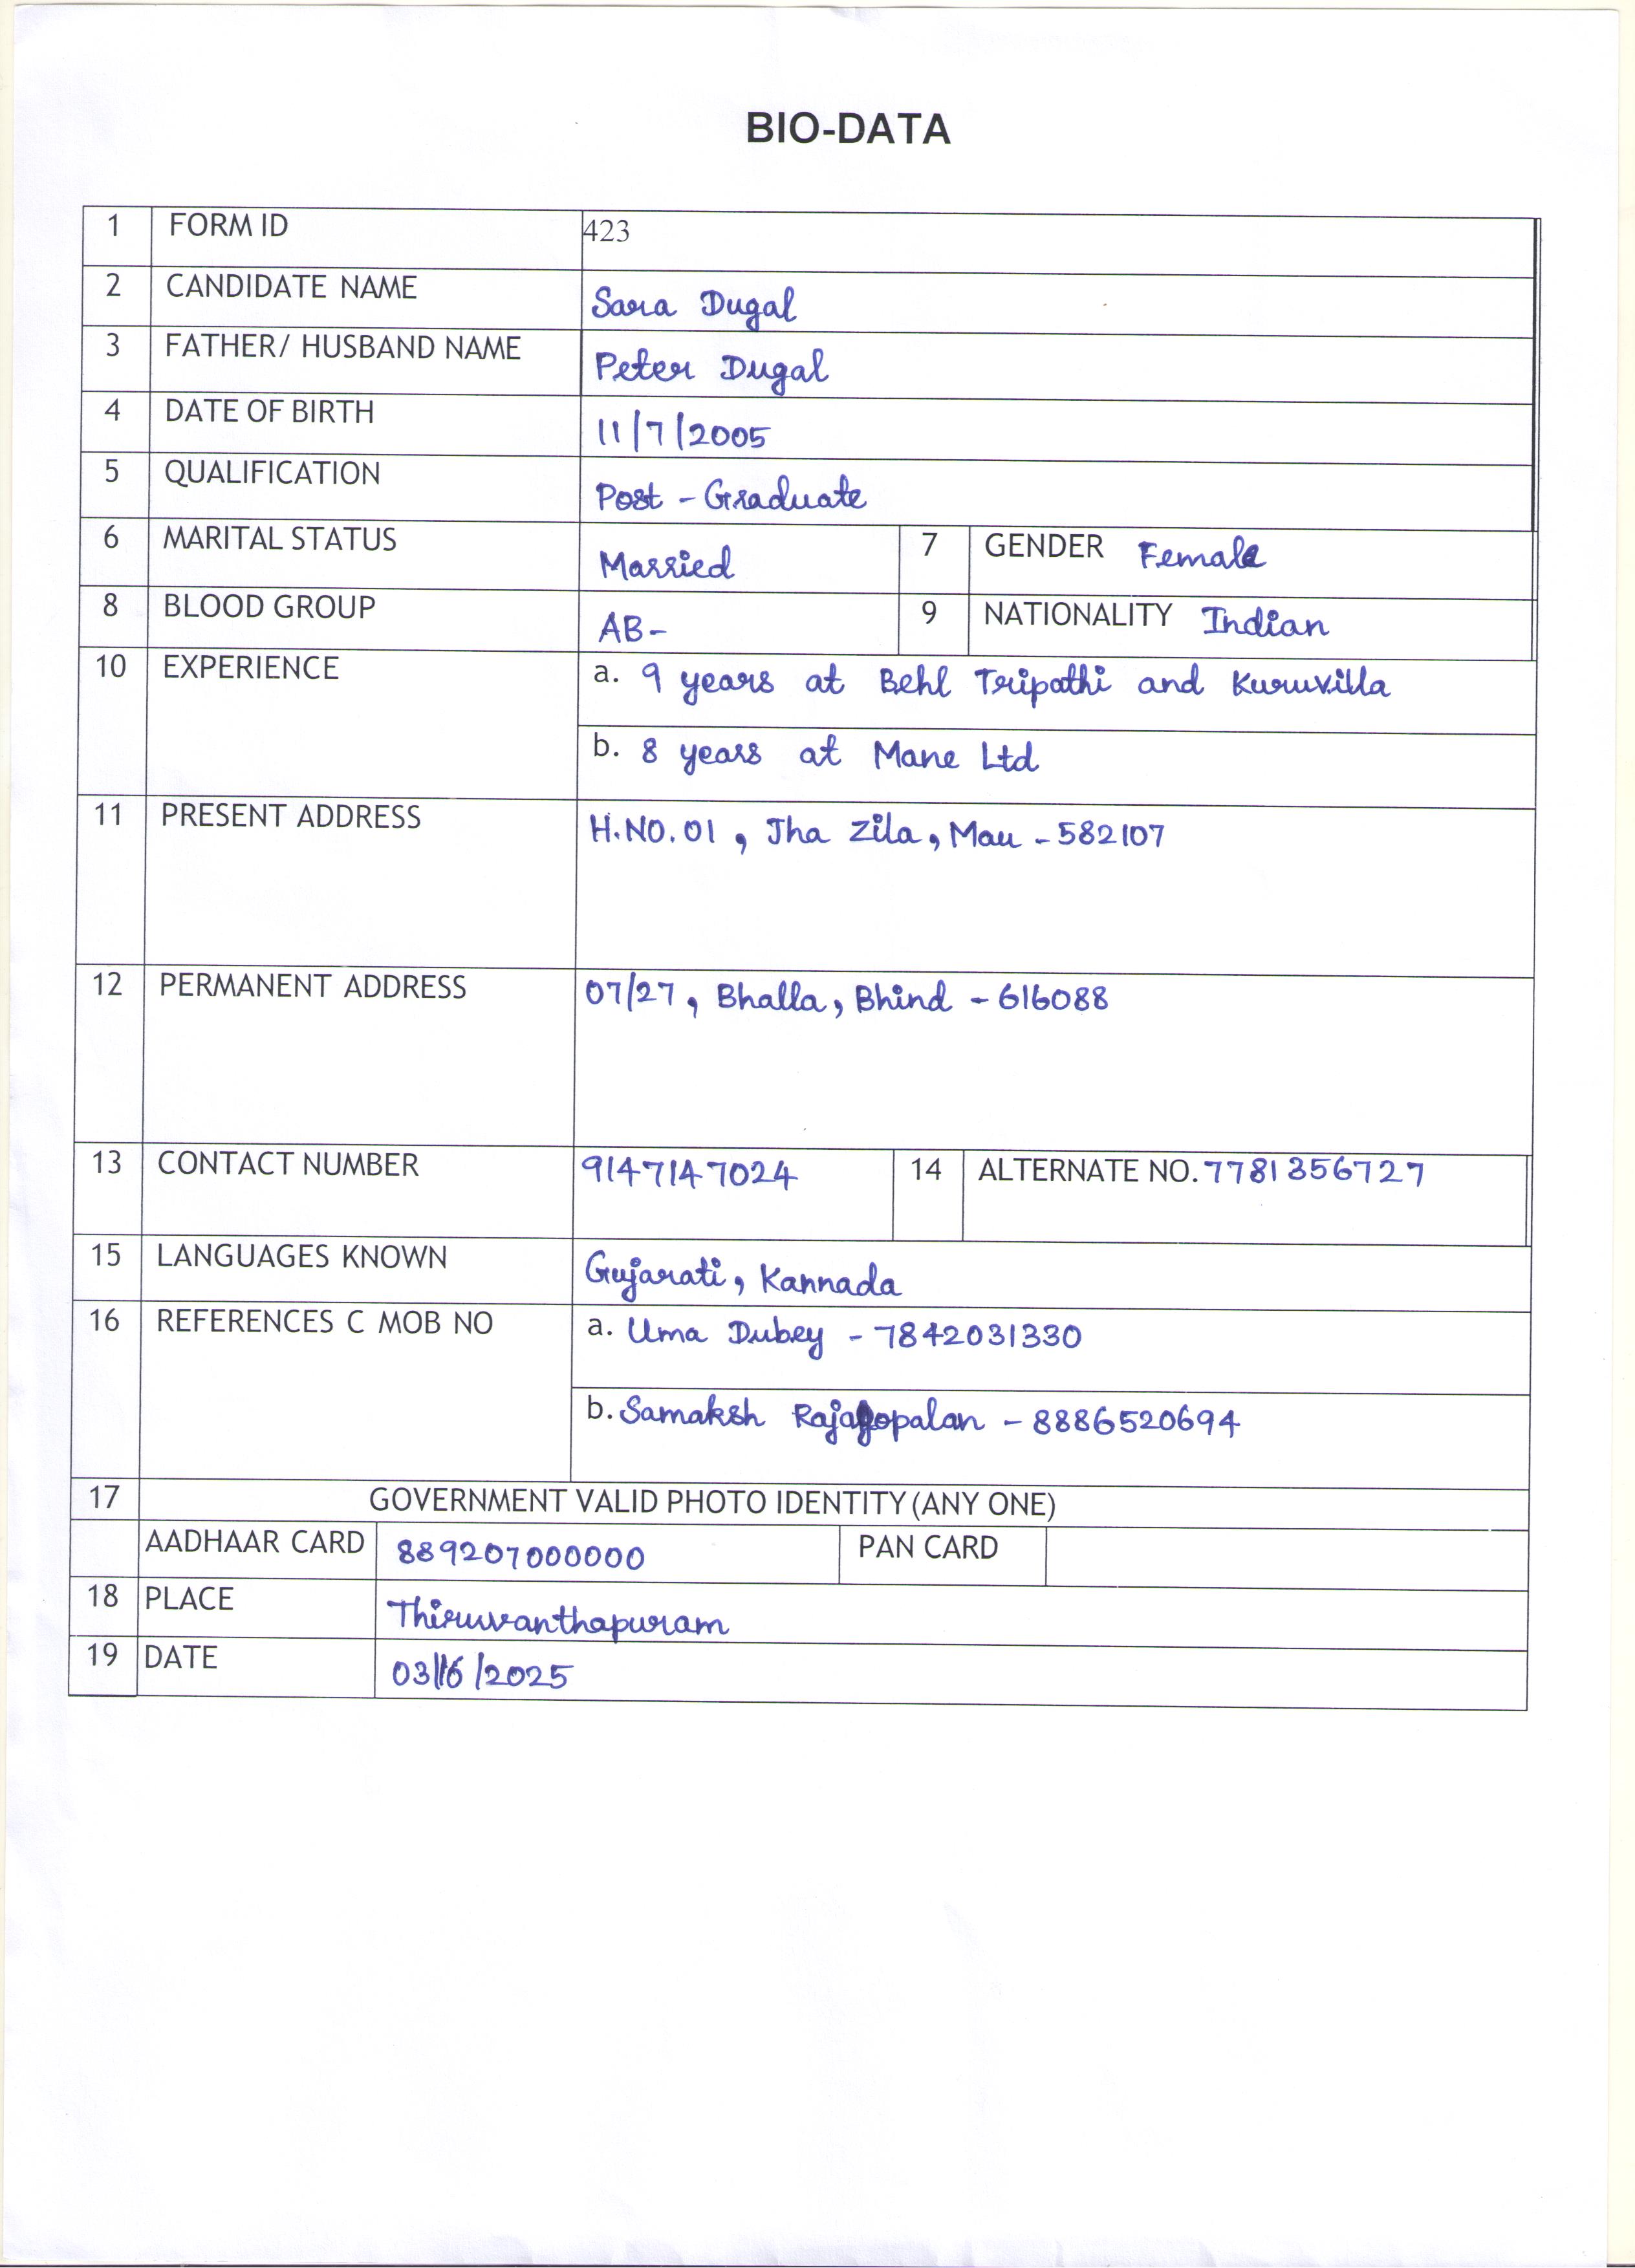 BIO-DATA
1 FORM ID 423
2 CANDIDATE NAME Sara Dugal
3 FATHER/ HUSBAND NAME Peter Dugal
4 DATE OF BIRTH 11/7/2005
5 QUALIFICATION Post - Graduate
6 MARITAL STATUS Married 7 GENDER Female
8 BLOOD GROUP AB- 9 NATIONALITY Indian
10 EXPERIENCE a. 9 years at Behl Tripathi and Kuruvilla
b. 8 years at Mane Ltd
11 PRESENT ADDRESS H.NO. 01, Jha Zila, Mau - 582107
12 PERMANENT ADDRESS 07/27, Bhalla, Bhind - 616088
13 CONTACT NUMBER 9147147024 14 ALTERNATE NO. 7781356727
15 LANGUAGES KNOWN Gujarati, Kannada
16 REFERENCES C MOB NO a. Uma Dubey - 7842031330
b. Samaksh Rajagopalan - 8886520694
17 GOVERNMENT VALID PHOTO IDENTITY (ANY ONE)
AADHAAR CARD 889207000000 PAN CARD
18 PLACE Thiruvanthapuram
19 DATE /2025